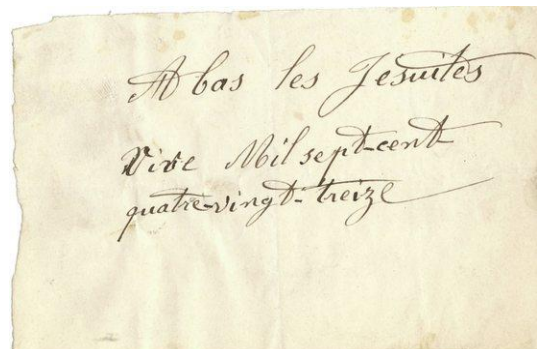 A bas les Jesuites
Vive Mil sept-cent
quatre-vingt-treize